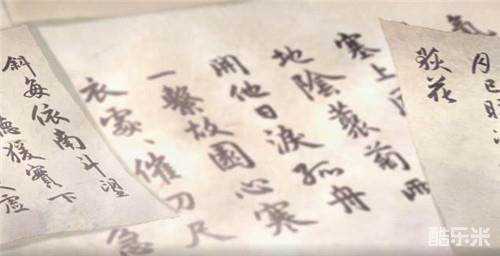 月已映
荻花
氣
塞上風
地陰叢菊兩
開他日淚孤舟
一繫故園心寒
衣處、催刀尺
急
斜每依南斗望
聽猿實下
虛
酷乐米